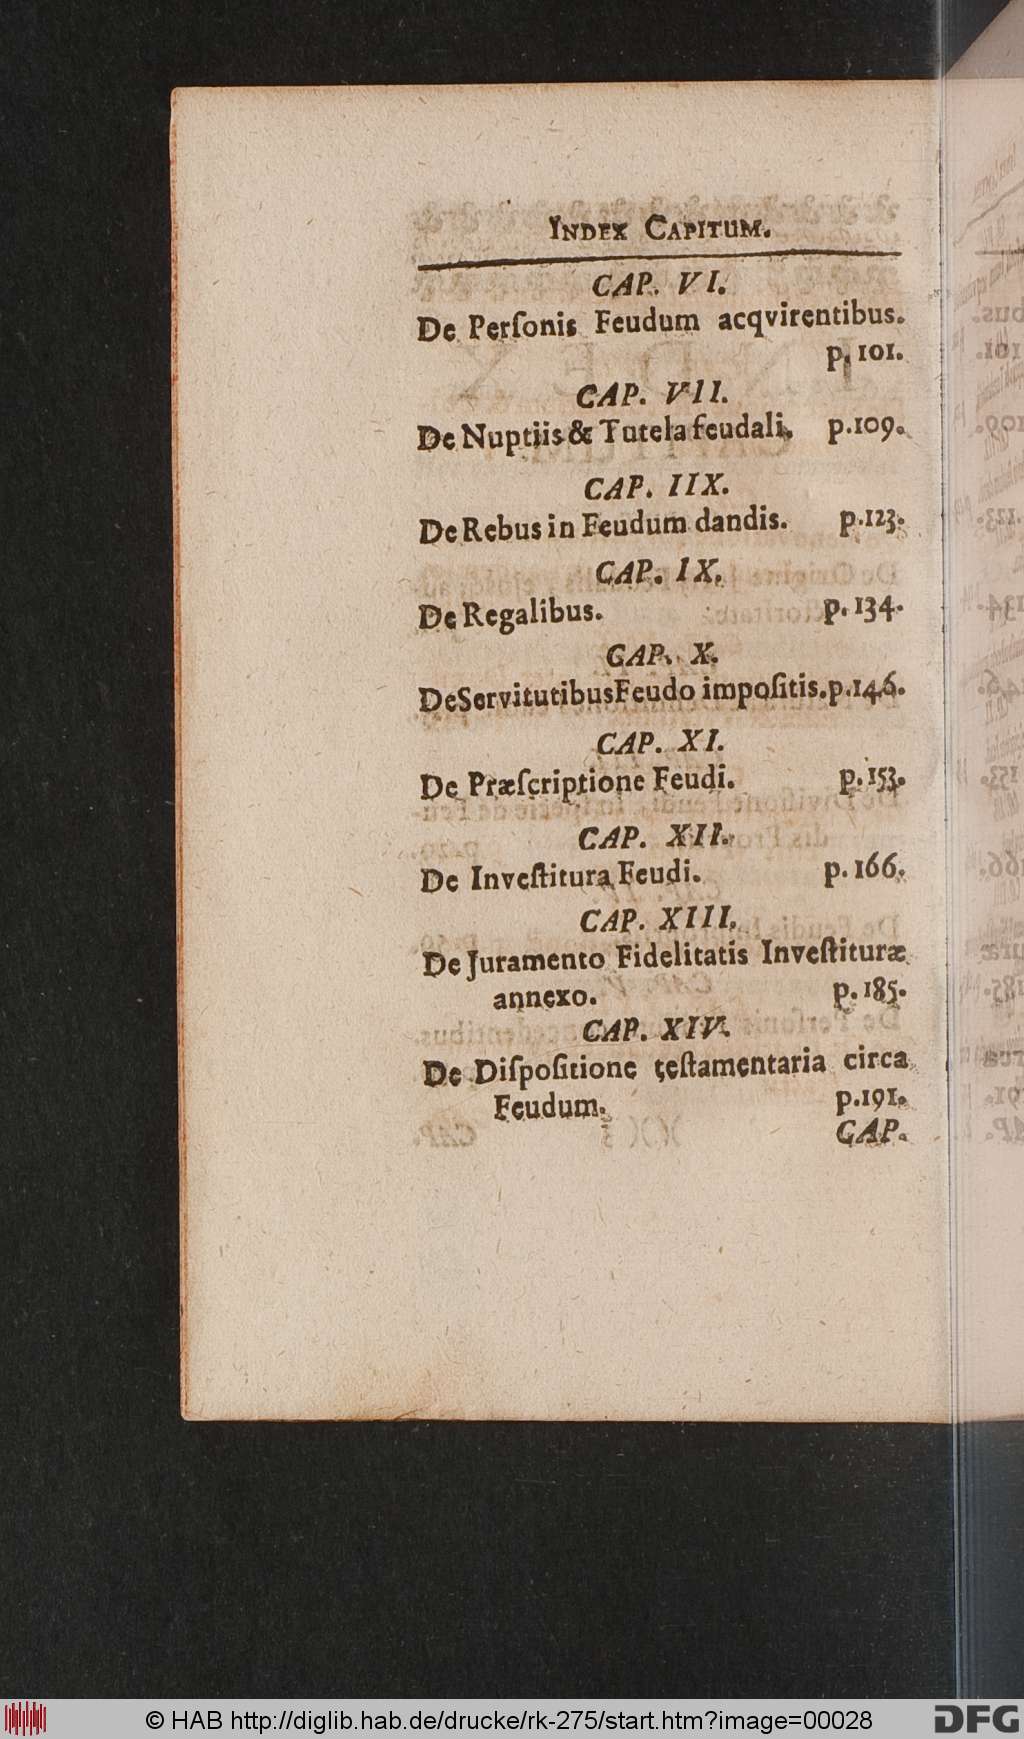 INDEX CAPITUM.
CAP. VI.
De Perſonis Feudum acqvirentibus.
p. 101.
CAP. VII.
De Nuptiis & Tutela feudali. p.109.
CAP. IIX.
De Rebus in Feudum dandis. p.123.
CAP. IX.
De Regalibus. p. 134.
CAP. X.
De Servitutibus Feudo impoſitis. p.146.
CAP. XI.
De Præſcriptione Feudi. p. 153.
CAP. XII.
De Inveſtitura Feudi. p. 166.
CAP. XIII.
De Juramento Fidelitatis Inveſtituræ
annexo. p. 185.
CAP. XIV.
De Diſpoſitione teſtamentaria circa
Feudum. p.191.
CAP.
© HAB http://diglib.hab.de/drucke/rk-275/start.htm?image=00028
DFG